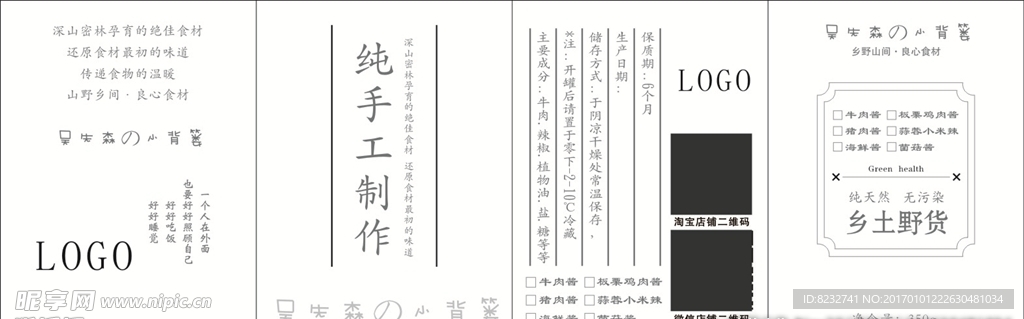 深山密林孕育的绝佳食材
还原食材最初的味道
传递食物的温暖
山野乡间·良心食材
吴先森の小背篓
一个人在外面
也要好好照顾自己
好好吃饭
好好睡觉
LOGO
深山密林孕育的绝佳食材 还原食材最初的味道
纯手工制作
吴先森の小背篓
保质期:6个月
生产日期:
储存方式:于阴凉干燥处常温保存,
*注:开罐后请置于零下-2-10℃冷藏
主要成分:牛肉.辣椒.植物油.盐.糖等等
牛肉酱 板栗鸡肉酱
猪肉酱 蒜蓉小米辣
海鲜酱 菌菇酱
LOGO
淘宝店铺二维码
微信店铺二维码
吴先森の小背篓
乡野山间·良心食材
牛肉酱 板栗鸡肉酱
猪肉酱 蒜蓉小米辣
海鲜酱 菌菇酱
Green health
纯天然 无污染
乡土野货
净含量:350g
昵享网 www.nipic.cn
ID:8232741 NO:20170101222630481034